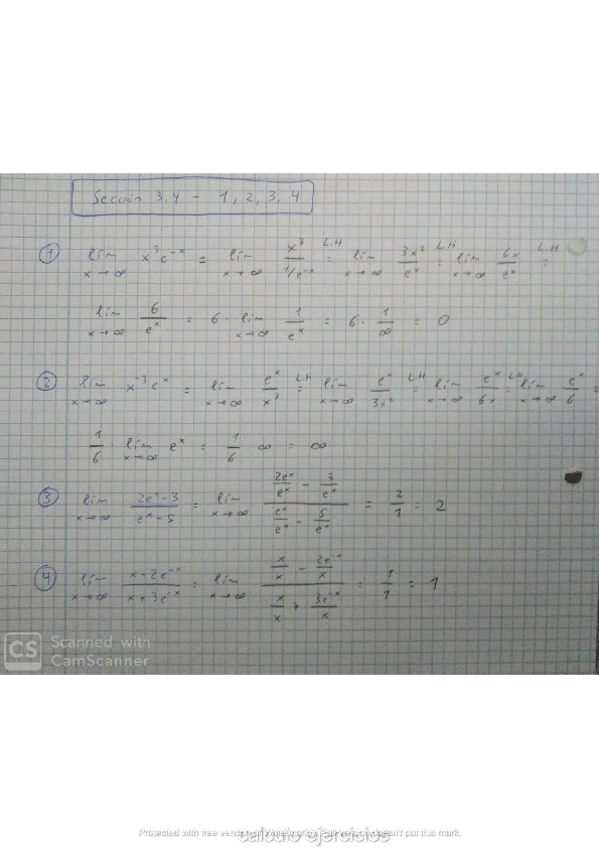 Sección 3.4 - 1, 2, 3, 4
① lim x→∞ x³e⁻ˣ = lim x→∞ x³/(1/e⁻ˣ) =ᴸ·ᴴ lim x→∞ 3x²/eˣ =ᴸᴴ lim x→∞ 6x/eˣ =ᴸ·ᴴ
lim x→∞ 6/eˣ = 6 · lim x→∞ 1/eˣ = 6 · 1/∞ = 0
② lim x→∞ x⁻³eˣ = lim x→∞ eˣ/x³ =ᴸᴴ lim x→∞ eˣ/3x² =ᴸᴴ lim x→∞ eˣ/6x =ᴸᴴ lim x→∞ eˣ/6 =
1/6 · lim x→∞ eˣ = 1/6 · ∞ = ∞
③ lim x→∞ (2eˣ-3)/(eˣ-5) = lim x→∞ (2eˣ/eˣ - 3/eˣ)/(eˣ/eˣ - 5/eˣ) = 2/1 = 2
④ lim x→∞ (x-2e⁻ˣ)/(x+3e⁻ˣ) = lim x→∞ (x/x - 2e⁻ˣ/x)/(x/x + 3e⁻ˣ/x) = 1/1 = 1
CS Scanned with
CamScanner
Protected with free version of Watermarkly. Full version doesn't put this mark.
calculo ejercicios